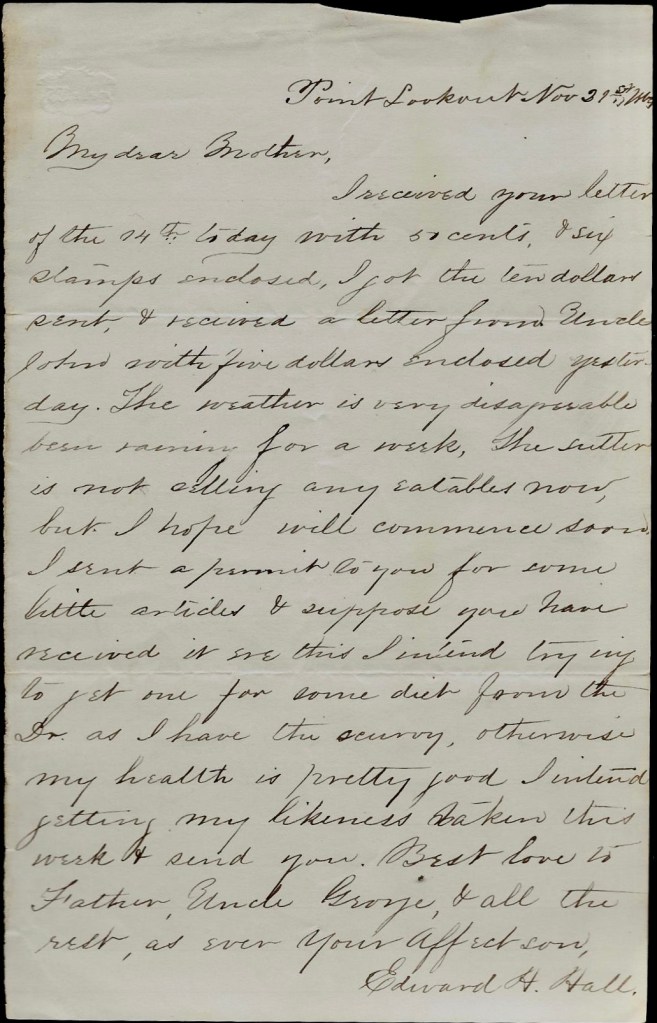 Point Lookout Nov 21st
My dear Mother,
I received your letter
of the 14th. today with 50 cents, & six
stamps enclosed, I got the ten dollars
sent, & received a letter from Uncle
John with five dollars enclosed yester-
day. The weather is very disagreeable
been raining for a week, The sutler
is not selling any eatables now,
but I hope will commence soon.
I sent a permit to you for some
little articles & suppose you have
received it ere this I intend trying
to get one for some diet from the
Dr. as I have the scurvy, otherwise
my health is pretty good I intend
getting my likeness taken this
week & send you. Best love to
Father, Uncle George, & all the
rest, as ever Your Affect son,
Edward H. Hall.